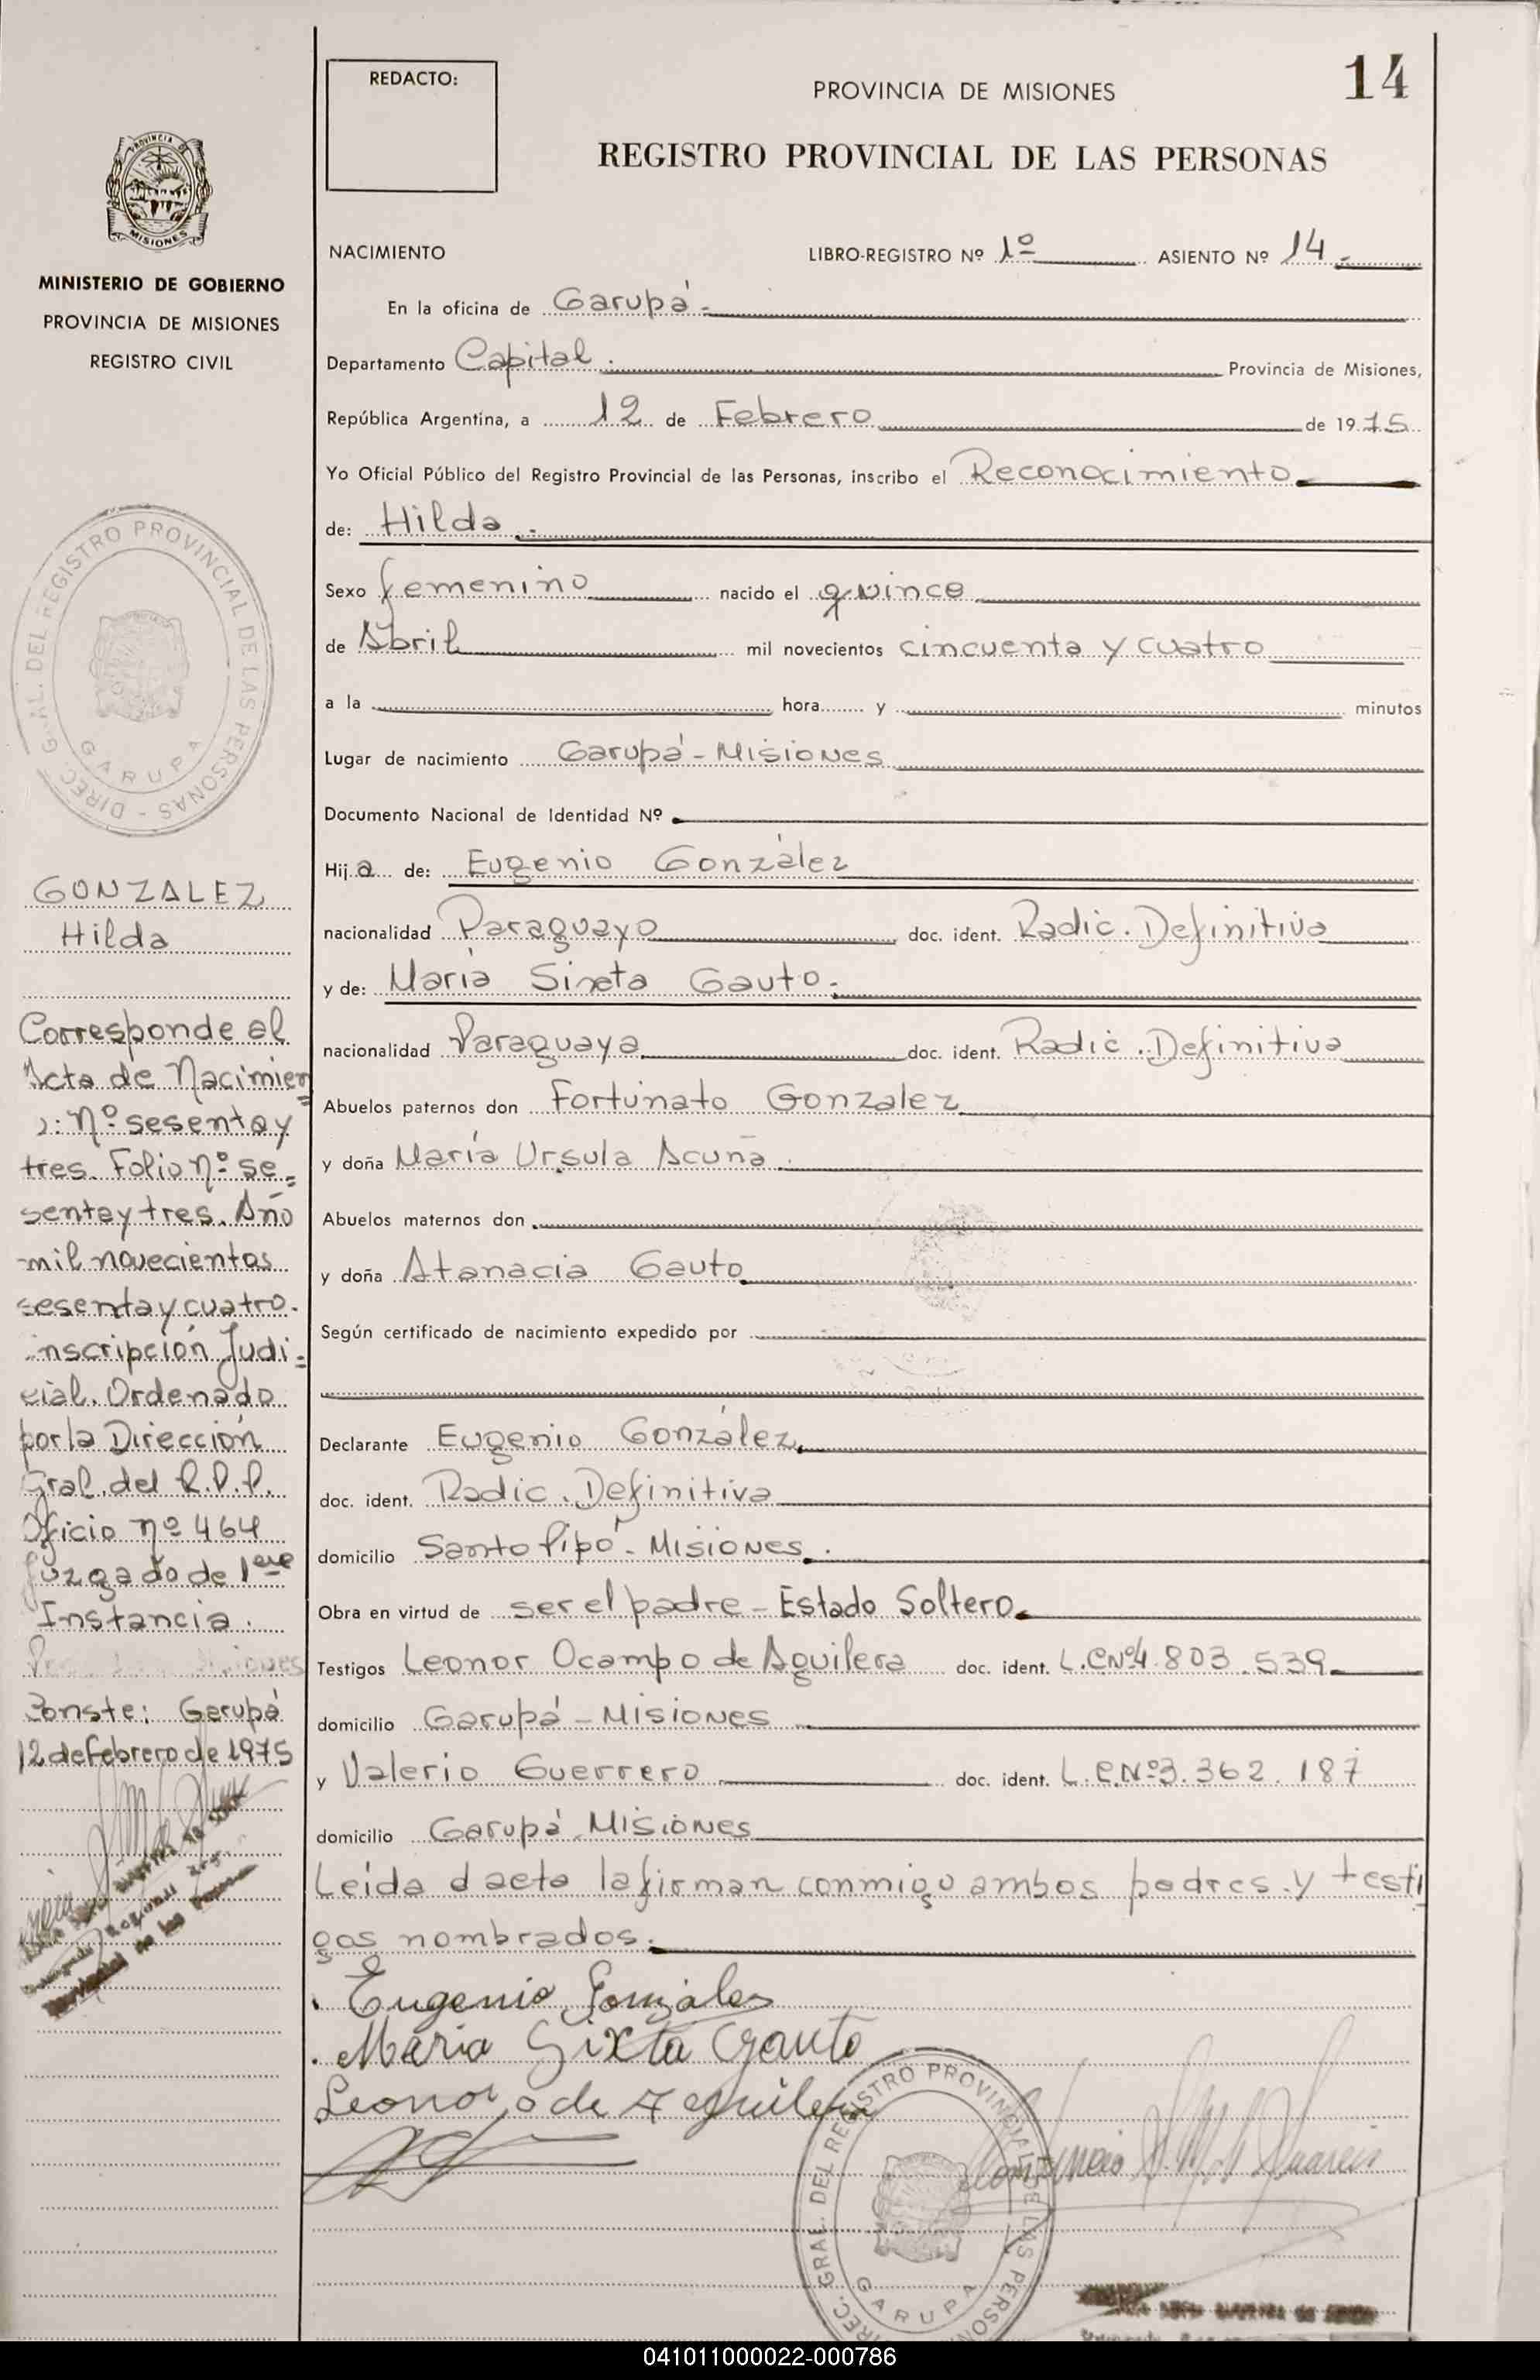 REDACTO:
PROVINCIA DE MISIONES
14
REGISTRO PROVINCIAL DE LAS PERSONAS
PROVINCIA DE
MISIONES
MINISTERIO DE GOBIERNO
PROVINCIA DE MISIONES
REGISTRO CIVIL
NACIMIENTO LIBRO-REGISTRO Nº 1º ASIENTO Nº 14.-
En la oficina de Garupá.-
Departamento Capital. Provincia de Misiones,
República Argentina, a 12 de Febrero de 1975
Yo Oficial Público del Registro Provincial de las Personas, inscribo el Reconocimiento
de: Hilda.-
Sexo femenino nacido el quince
de Abril mil novecientos cincuenta y cuatro
a la hora y minutos
Lugar de nacimiento Garupá - Misiones
Documento Nacional de Identidad Nº
Hija de: Eugenio González
nacionalidad Paraguayo doc. ident. Radic. Definitiva
y de: María Sixta Gauto.-
nacionalidad Paraguaya doc. ident. Radic. Definitiva
Abuelos paternos don Fortunato Gonzalez
y doña María Ursula Acuña.
Abuelos maternos don
y doña Atanacia Gauto
Según certificado de nacimiento expedido por
Declarante Eugenio González
doc. ident. Radic. Definitiva
domicilio Santo Pipó - Misiones.
Obra en virtud de ser el padre - Estado Soltero.
Testigos Leonor Ocampo de Aguilera doc. ident. L.C Nº4.803.539
domicilio Garupá - Misiones
y Valerio Guerrero doc. ident. L.E.Nº3.362.187
domicilio Garupá Misiones
Leída el acta la firman conmigo ambos padres y testi
gos nombrados.
Eugenio González
Maria Sixta Gauto
Leonor o de Aguilera
DIREC. GRAL. DEL REGISTRO PROVINCIAL DE LAS PERSONAS
GARUPA
DIREC. GRAL. DEL REGISTRO PROVINCIAL DE LAS PERSONAS -
GARUPA
GONZALEZ
Hilda
Corresponde al
Acta de Nacimien
=
o: Nº sesenta y
tres. Folio nº se=
senta y tres. Año
mil novecientos
sesenta y cuatro.
inscripción Judi=
cial. Ordenado
por la Dirección
Gral del R.P.P.
Oficio nº 464
Juzgado de 1era
Instancia.
Misiones
Conste: Garupá
12 de febrero de 1975
041011000022-000786